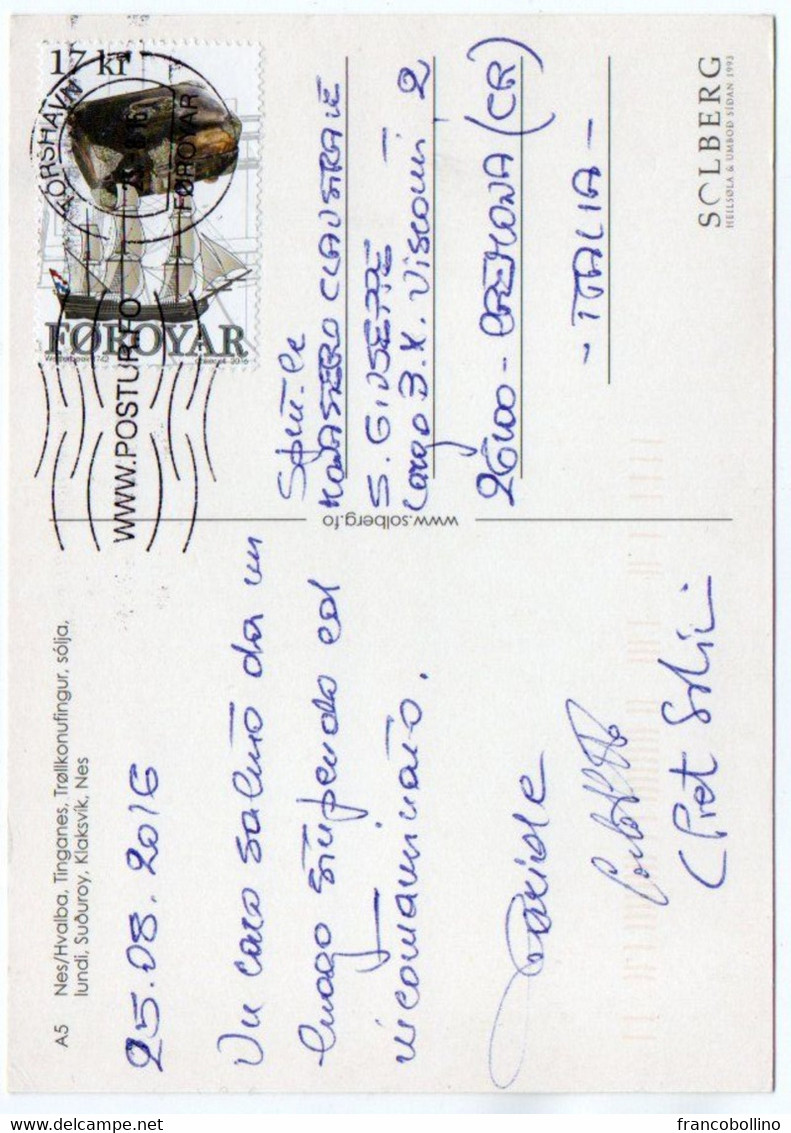 A5 Nes/Hvalba, Tinganes, Trøllkonufingur, sólja,
lundi, Suðuroy, Klaksvík, Nes
25.08.2016
Un caro saluto da un
luogo stupendo ed
incontaminato.
17 kr
FØROYAR
2016
TÓRSHAVN
FØROYAR
WWW.POSTUR.FO
www.solberg.fo
Spett.le
MONASTERO CLAUSTRALE
S. GIUSEPPE
Largo B.M. Visconti 2
26100 - CREMONA (CR)
- ITALIA -
SOLBERG
HEILSØLA & UMBOÐ SÍÐAN 1993
delcampe.net
francobollino